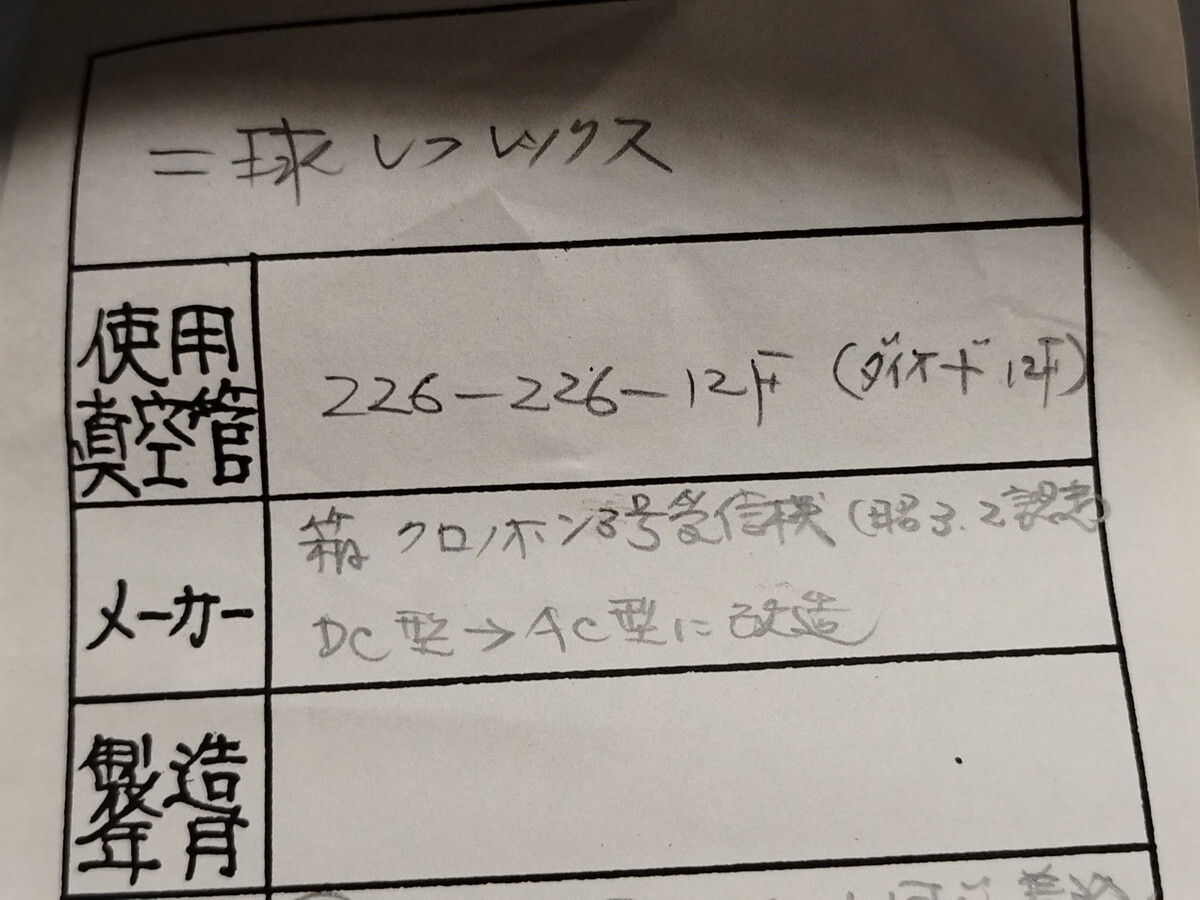 二球レフレックス
使用
真空管
226-226-12F (ダイオード12F)
メーカー
箱 クロノホン3号受信機 (昭3.2認
DC型→AC型に改造
製造
年月